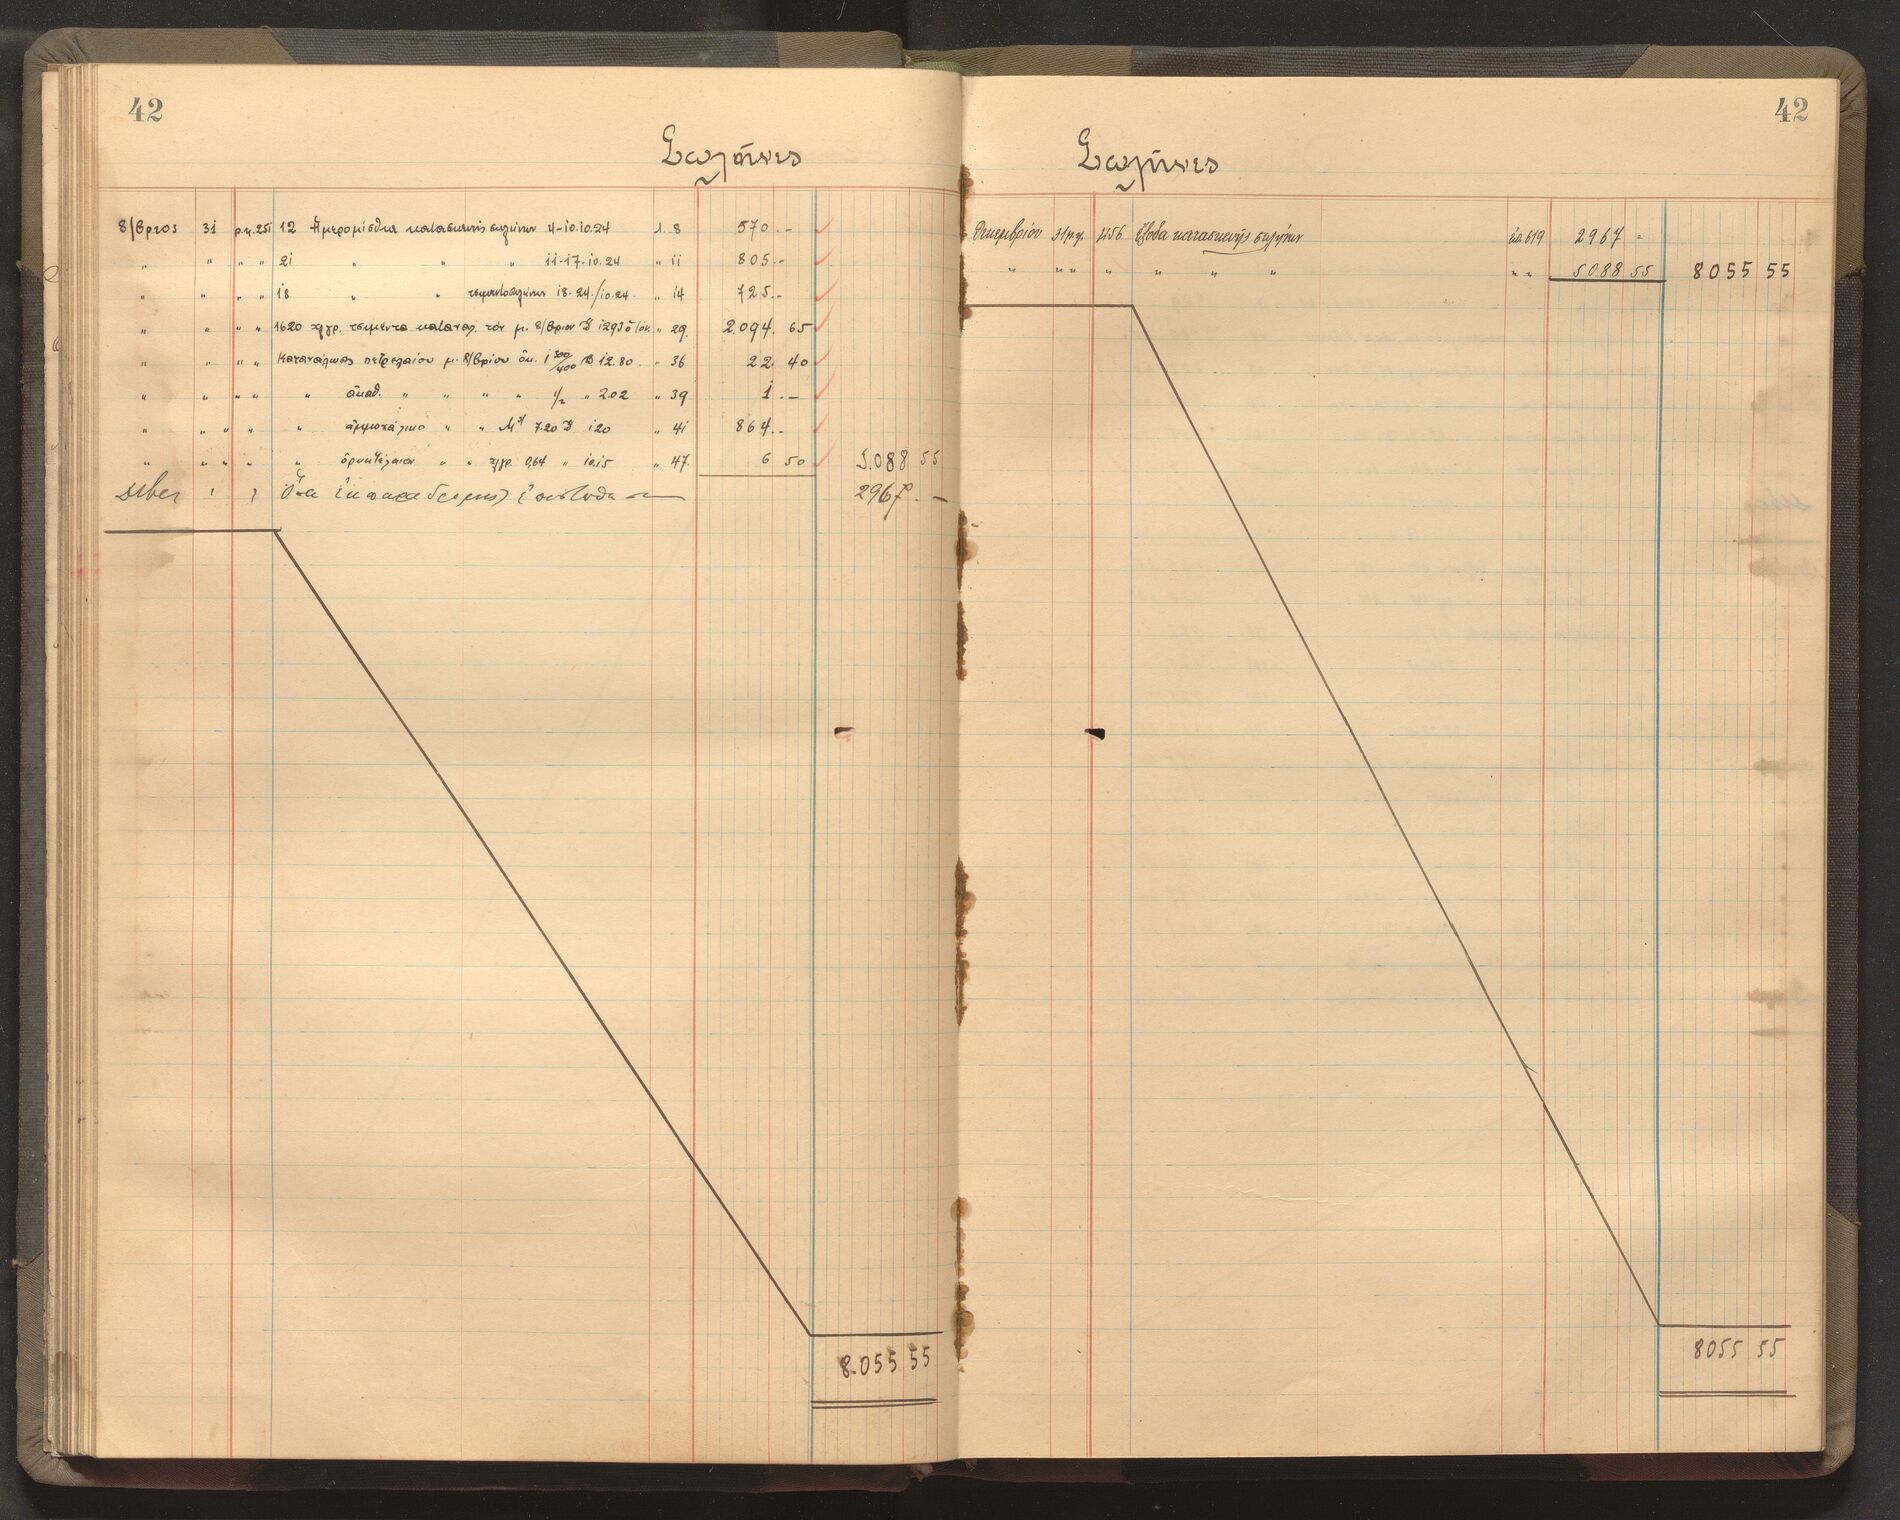 42
Σωλῆνες
8/βριος 31 ρ.π. 251 12 Ἡμερομίσθια κατασκευῆς σωλήνων 4-10.10.24 1. 8 570.-
" " " " 21 " " " 11-17-10.24 " 11 805.-
" " " " 18 " " τσιμεντοσωλήνων 18-24/10.24. " 14 725.-
" " " " 1620 χλγρ. τσιμέντα καταναλ. τὸν μ. 8/βριον 1293 " 29. 2.094. 65
" " " " Κατανάλωσις πετρελαίου μ. 8/βρίου ὀκ. 1 300/400 12.80 " 36 22. 40
" " " " " ἀκαθ. " " " " 1/2 " 2.02 " 39 1.-
" " " " " " " 7.20 120 " 41 864.-
" " " " " ὀρυκτέλαιον " " χλγρ. 0,64 " 10.15 " 47. 6 50 5.088 55
2967.-
8.055 55
42
Σωλῆνες
Δεκεμβρίου 31 ἔξοδα κατασκευῆς σωλήνων 619 2967 -
" " " " " " " " " 5088 55 8055 55
8055 55